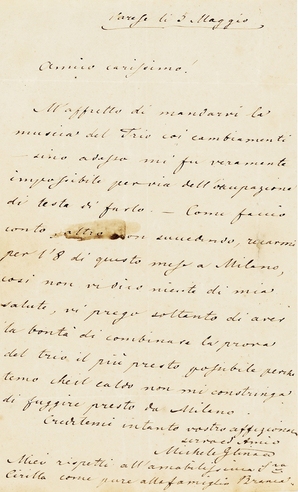 Varese li 3 Maggio
Amico carissimo!
M'affretto di mandarvi la
musica del Trio coi cambiamenti
sino adesso mi fu veramente
impossibile per via dell'occupazione
di testa di farlo. — Come faccio
conto non succedendo, recarmi
per l'8 di questo mese a Milano,
cosi non vi dico niente di mia
salute, vi prego soltanto di aver
la bontà di combinare la prova
del trio il più presto possibile perche
temo che il caldo non mi constringa
di fuggire presto da Milano.
Credetemi intanto vostro affezionato
servo ed Amico
Michele Glinka
Miei rispetti all'amabilissima
Cirilla come pure alla famiglia Branca.